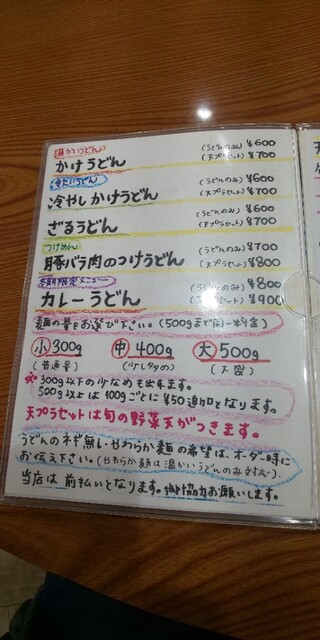 温かいうどん
かけうどん (うどんのみ) ¥600
(天プラセット) ¥700
冷たいうどん
冷やしかけうどん (うどんのみ) ¥600
(天プラセット) ¥700
ざるうどん (うどんのみ) ¥600
(天プラセット) ¥700
つけめん
豚バラ肉のつけうどん (うどんのみ) ¥700
(天プラセット) ¥800
冬期限定メニュー
カレーうどん (うどんのみ) ¥800
(天プラセット) ¥900
麺の量をお選び下さい。(500gまで同一料金)
小300g 中400g 大500g
(普通量) (少し多め) (大盛)
※300g以下の少なめも出来ます。
500g以上は100gごとに¥50追加となります。
天プラセットは旬の野菜天がつきます。
うどんのネギ無し・やわらか麺の希望は、オーダー時に
お伝え下さい。(やわらか麺は温かいうどんのみ対応)
当店は前払いとなります。御協力お願いします。